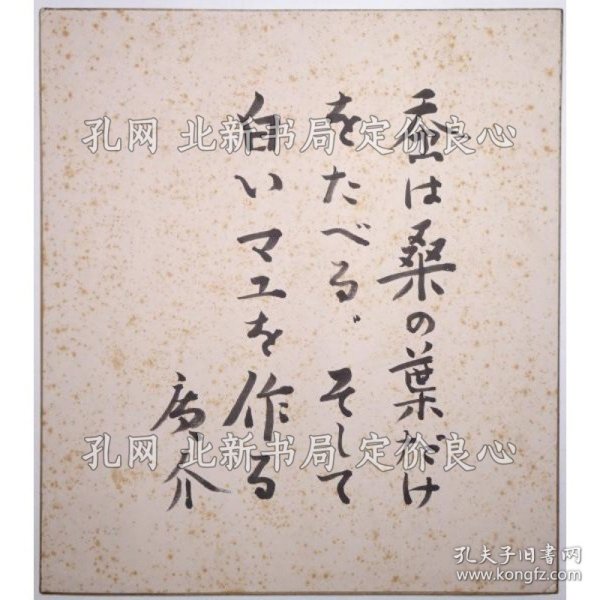 蚕は桑の葉だけ
をたべる。そして
白いマユを作る
広介
孔网 北新书局 定价良心
孔网 北新书局 定价良心
孔夫子旧书网
www.kongfz.com